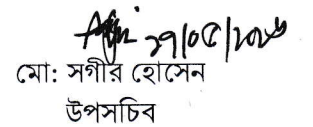 ২৭/০৫/২০২৬
মো: সগীর হোসেন
উপসচিব